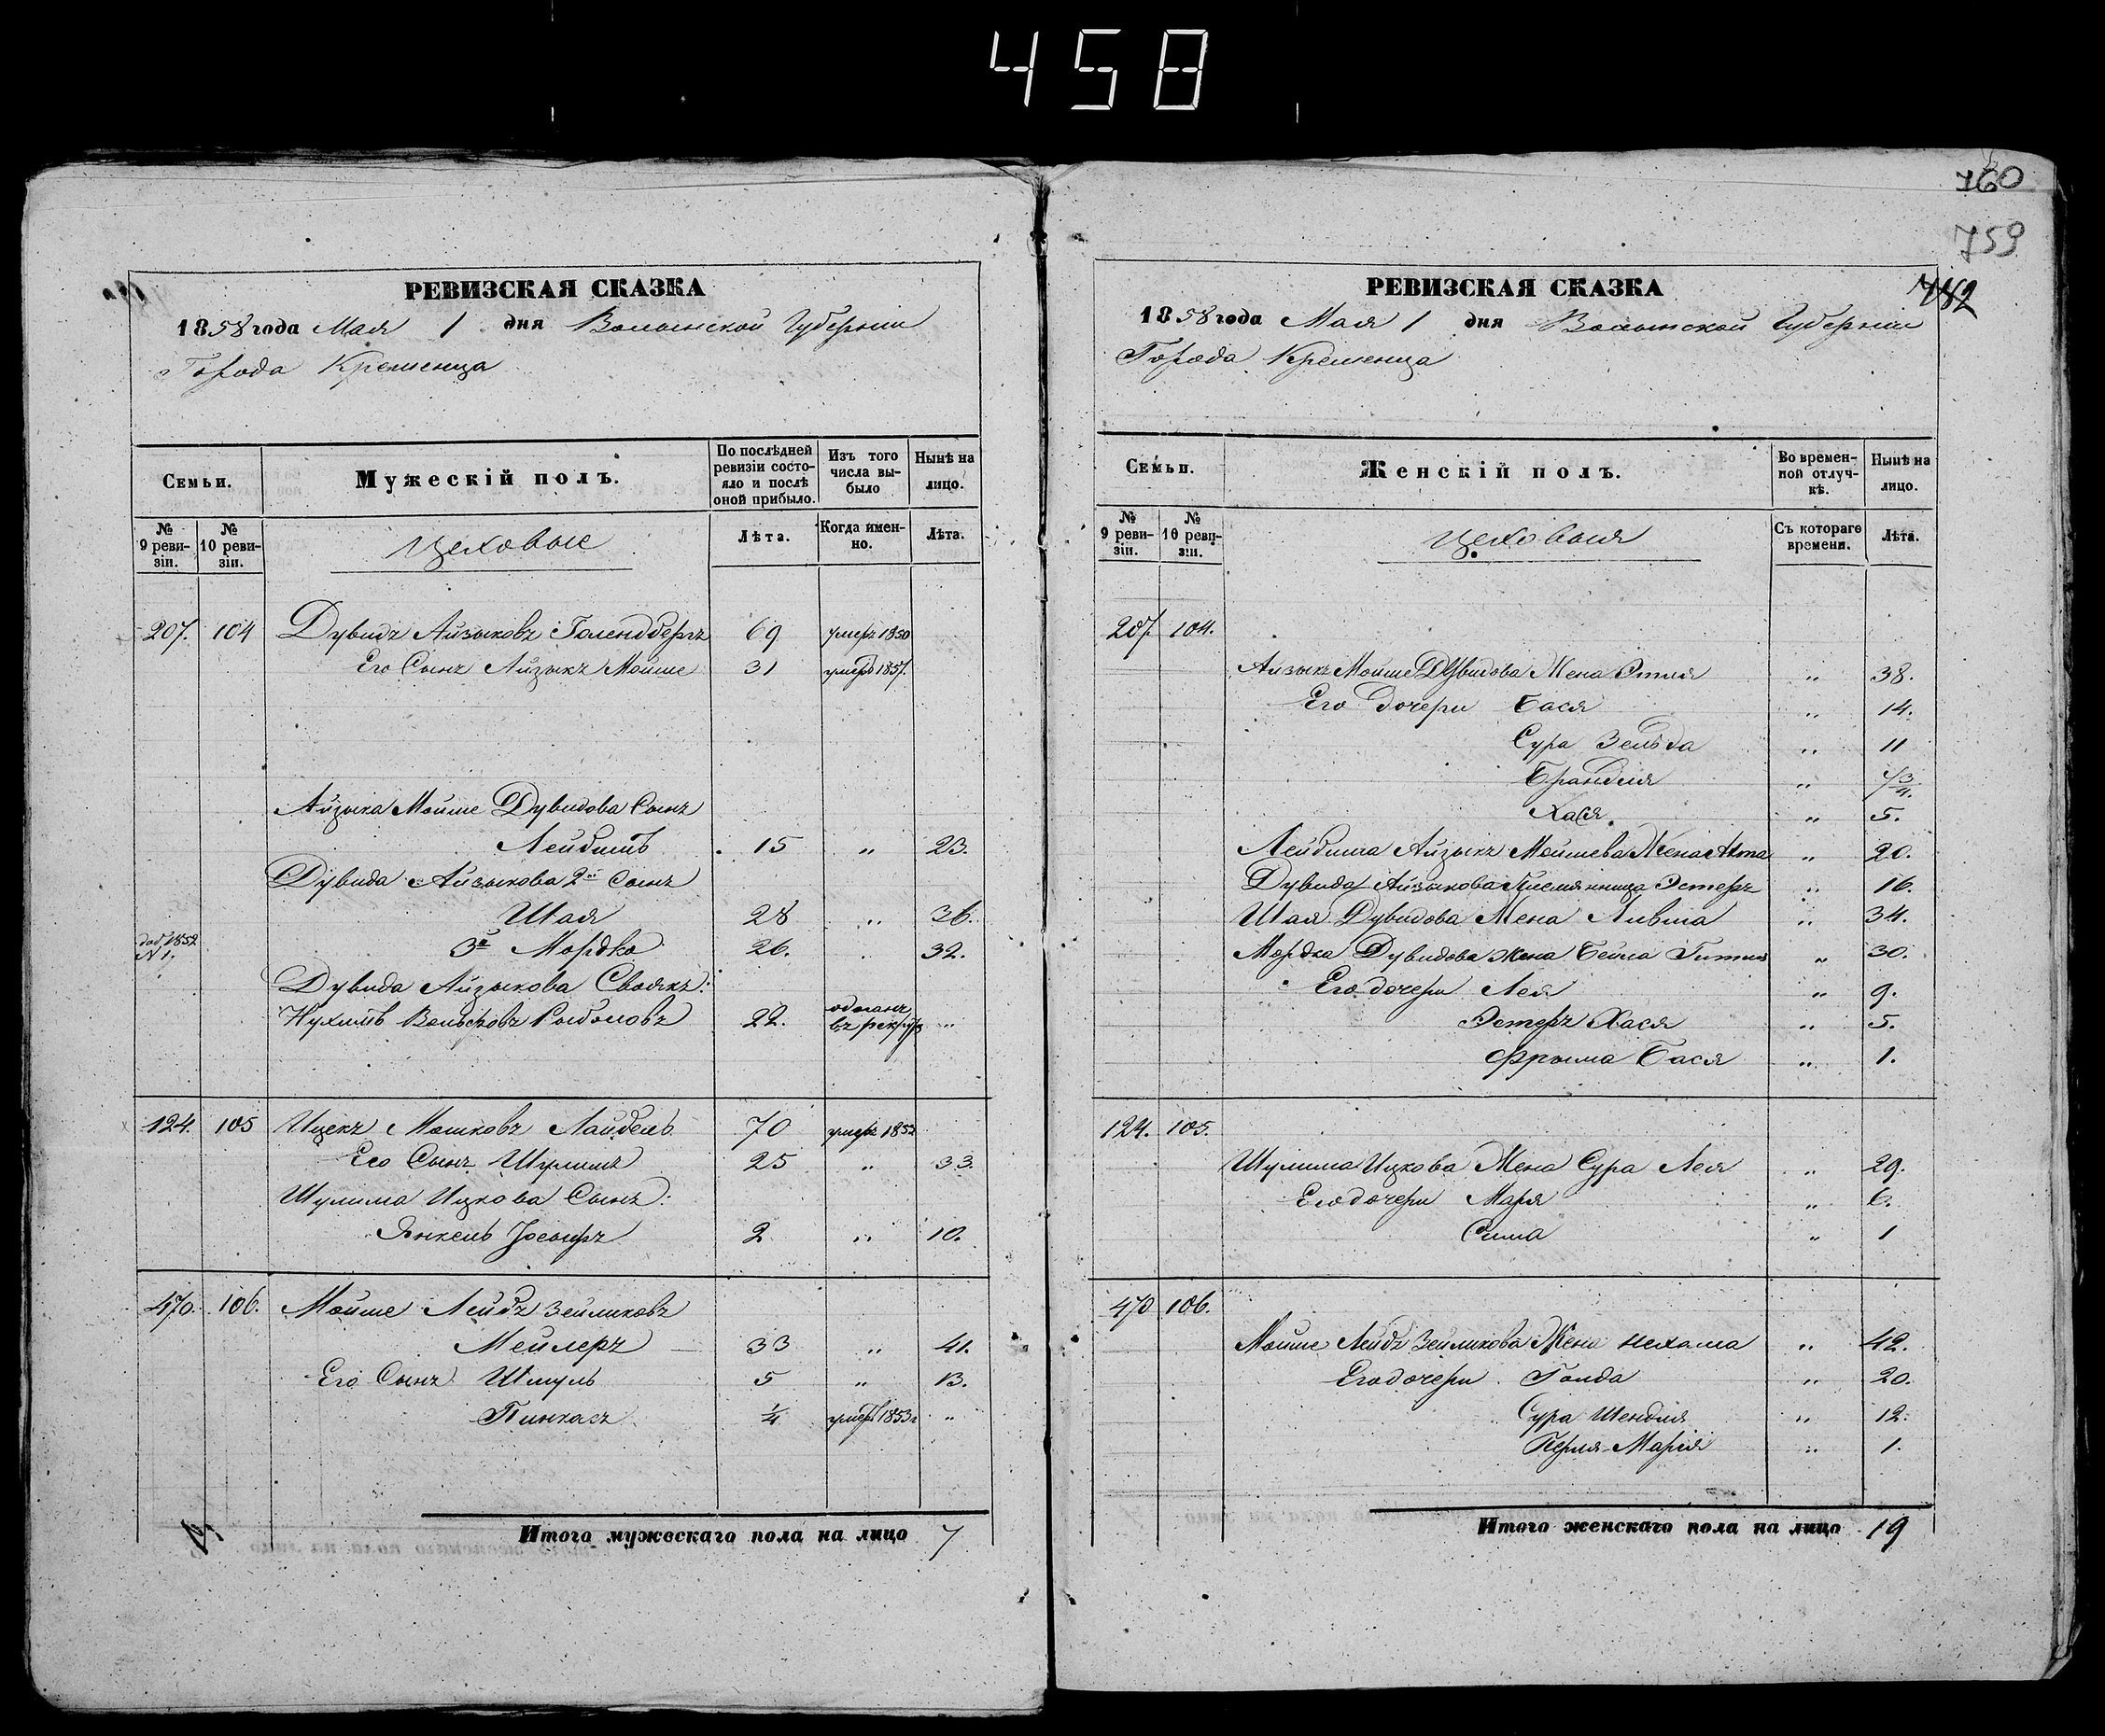 458
РЕВИЗСКАЯ СКАЗКА
1858 года Мая 1 дня Волынской Губернiи
Города Кременца
Семьи.
Мужескiй полъ.
По послѣдней ревизiи состояло и послѣ оной прибыло.
Изъ того числа выбыло
Нынѣ на лицо.
№ 9 ревизiи.
№ 10 ревизiи.
Цеховые
Лѣта.
Когда именно.
Лѣта.
207. 104 Дувидъ Айзыковъ Голендбергъ 69 умеръ 1850
Его Сынъ Айзыкъ Мойше 31 умеръ 1857.
Айзыка Мойше Дувидова Сынъ
Лейбишъ 15 " 23.
Дувида Айзыкова 2й Сынъ
Шая 28 " 36.
доб. 1852 №1. 3й Мордко 26. . 32.
Дувида Айзыкова Своякъ:
Нухимъ 22. отданъ въ рекруты "
124. 105 Ицекъ Мошковъ Лайдель 70 умеръ 1852
Его Сынъ Шулимъ 25 " 33.
Шулима Ицкова Сынъ:
Янкель Іосыфъ 2 " 10.
470. 106. Мойше Лейбъ Зейликовъ
Мейлеръ 33 " 41.
Его Сынъ Шмуль 5 " 13.
Пинкасъ 1/4 умеръ 1853г "
Итого мужескаго пола на лицо 7
760
759
782
РЕВИЗСКАЯ СКАЗКА
1858 года Мая 1 дня Волынской Губернiи
Города Кременца
Семьи.
Женскiй полъ.
Во временной отлучкѣ.
Нынѣ на лицо.
№ 9 ревизiи.
№ 10 ревизiи.
Цеховыя
Съ котораго времени.
Лѣта.
207. 104.
Айзыкъ Мойше Дувидова Жена Этля " 38.
Его дочери Бася " 14.
Сура Зельда " 11
Брандля "
Хася. " 5.
Лейбиша Айзыкъ Мойшева Жена " 20.
Дувида Айзыкова Племянница Эстеръ " 16.
Шая Дувидова Жена Ливша " 34.
Мордка Дувидова Жена Бейла Гитля " 30.
Его дочери Лея " 9.
Эстеръ Хася " 5.
Фрыма Бася " 1.
124. 105.
Шулима Ицкова Жена Сура Лея " 29.
Его дочери Маря " 6.
Сима " 1
470 106.
Мойше Лейбъ Зейликова Жена Нехама " 42.
Его дочери Голда " 20.
Сура Шендля " 12.
Перля Марiя " 1.
Итого женскаго пола на лицо 19